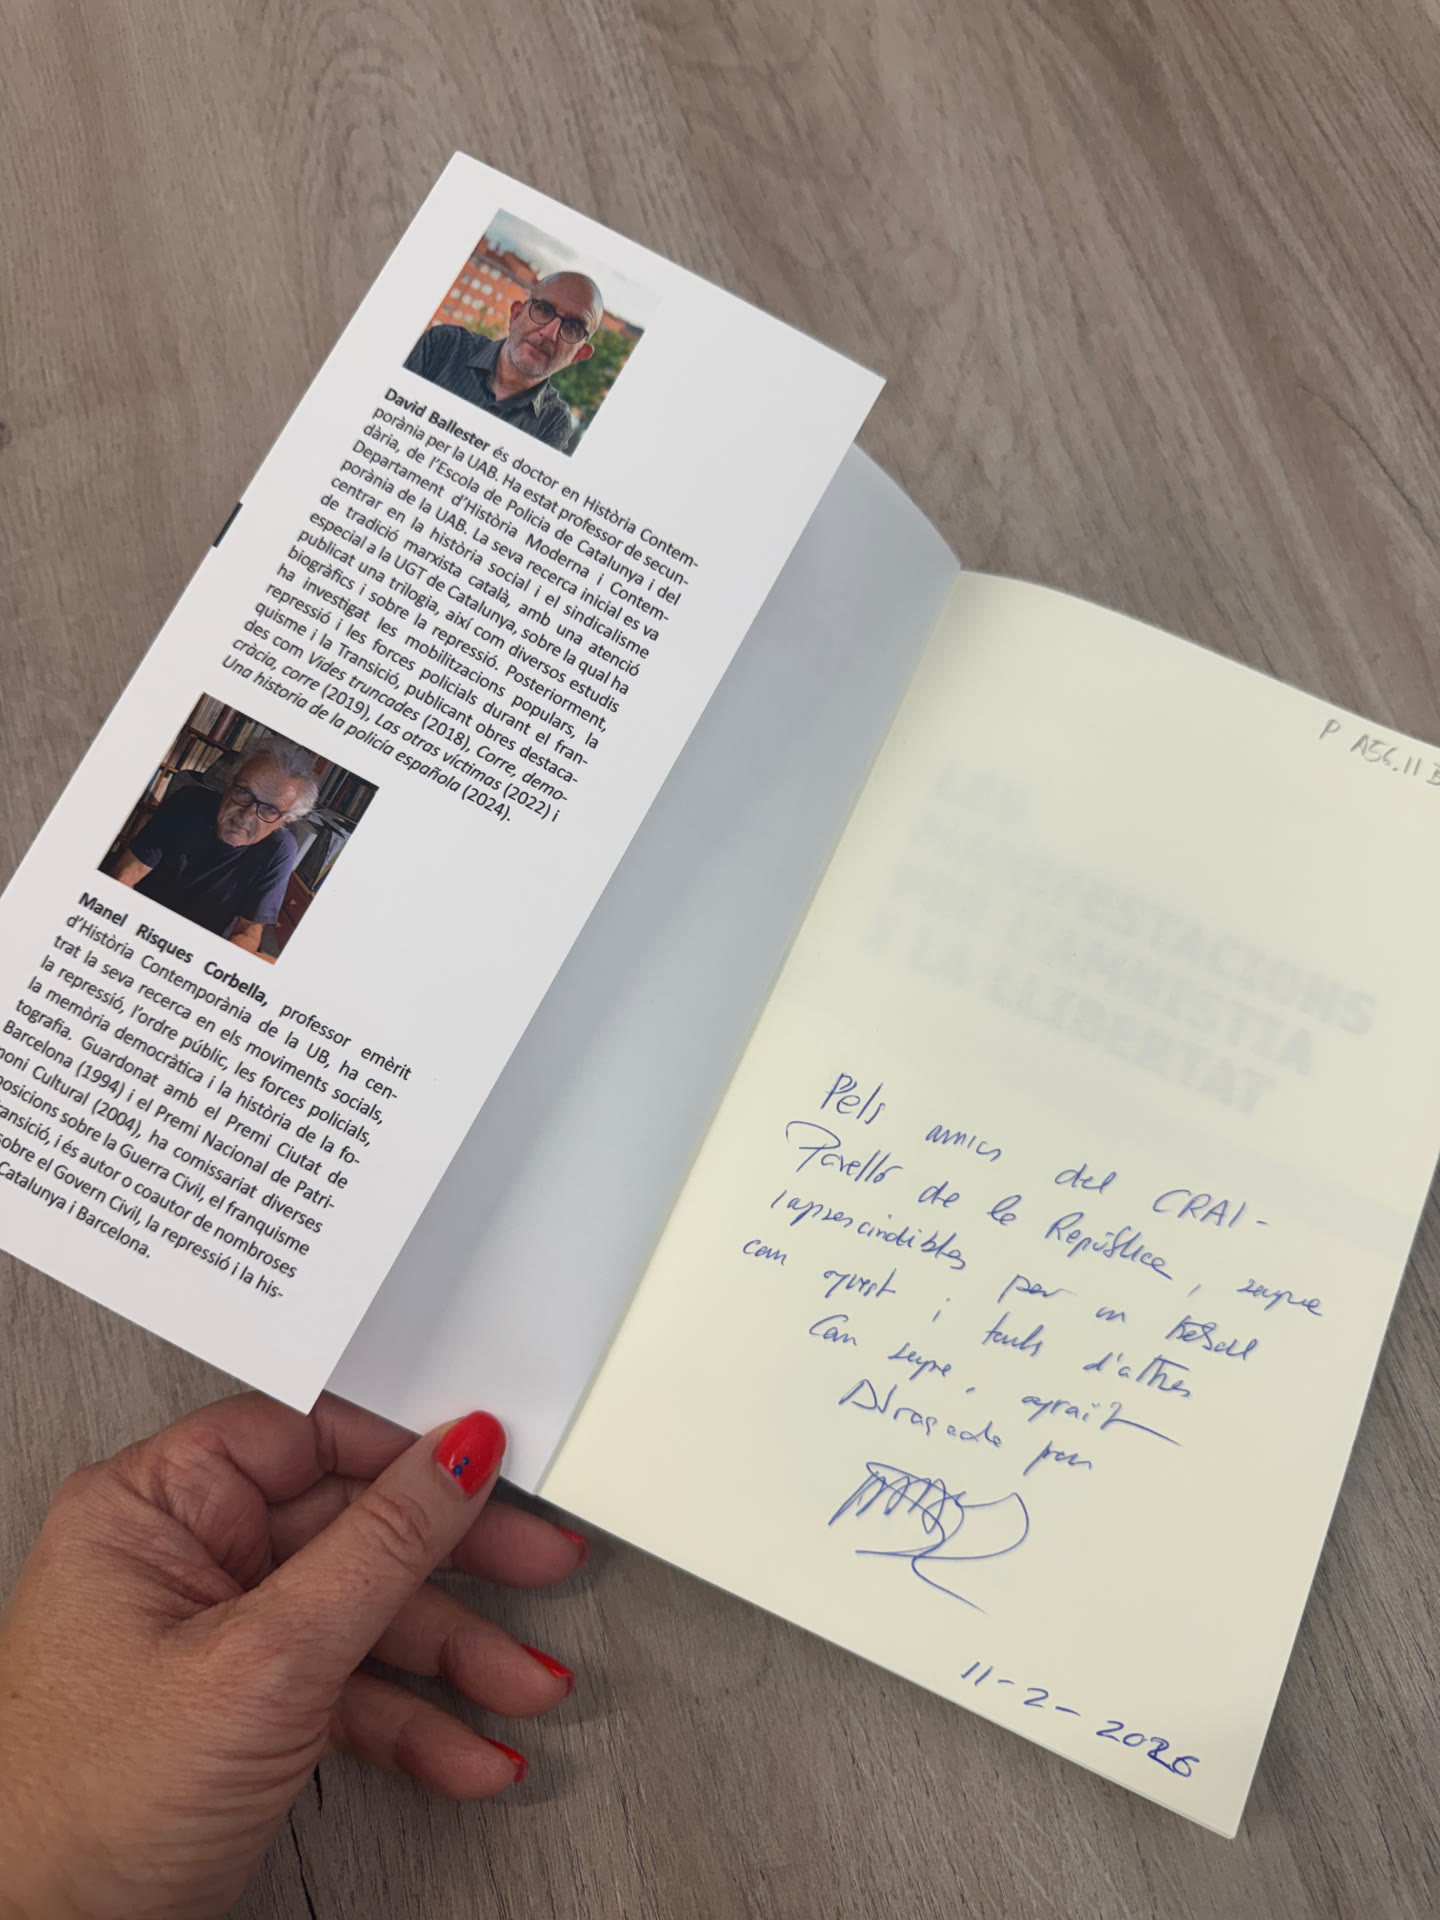 David Ballester és doctor en Història Contem-
porània per la UAB. Ha estat professor de secun-
dària, de l'Escola de Policia de Catalunya i del
Departament d'Història Moderna i Contem-
porània de la UAB. La seva recerca inicial es va
centrar en la història social i el sindicalisme
de tradició marxista català, amb una atenció
especial a la UGT de Catalunya, sobre la qual ha
publicat una trilogia, així com diversos estudis
biogràfics i sobre la repressió. Posteriorment,
ha investigat les mobilitzacions populars, la
repressió i les forces policials durant el fran-
quisme i la Transició, publicant obres destaca-
des com Vides truncades (2018), Corre, demo-
cràcia, corre (2019), Las otras víctimas (2022) i
Una historia de la policía española (2024).
Manel Risques Corbella, professor emèrit
d'Història Contemporània de la UB, ha cen-
trat la seva recerca en els moviments socials,
la repressió, l'ordre públic, les forces policials,
la memòria democràtica i la història de la fo-
tografia. Guardonat amb el Premi Ciutat de
Barcelona (1994) i el Premi Nacional de Patri-
moni Cultural (2004), ha comissariat diverses
posicions sobre la Guerra Civil, el franquisme
ransició, i és autor o coautor de nombroses
sobre el Govern Civil, la repressió i la his-
Catalunya i Barcelona.
P A56.11 B
MANIFESTACIONS
PER L'AMNISTIA
I LA LLIBERTAT
Pels amics del CRAI-
Pavelló de la República, sempre
imprescindibles per un treball
com aquest i tants d'altres
Com sempre, agraït
Abraçada pau
11-2-2026